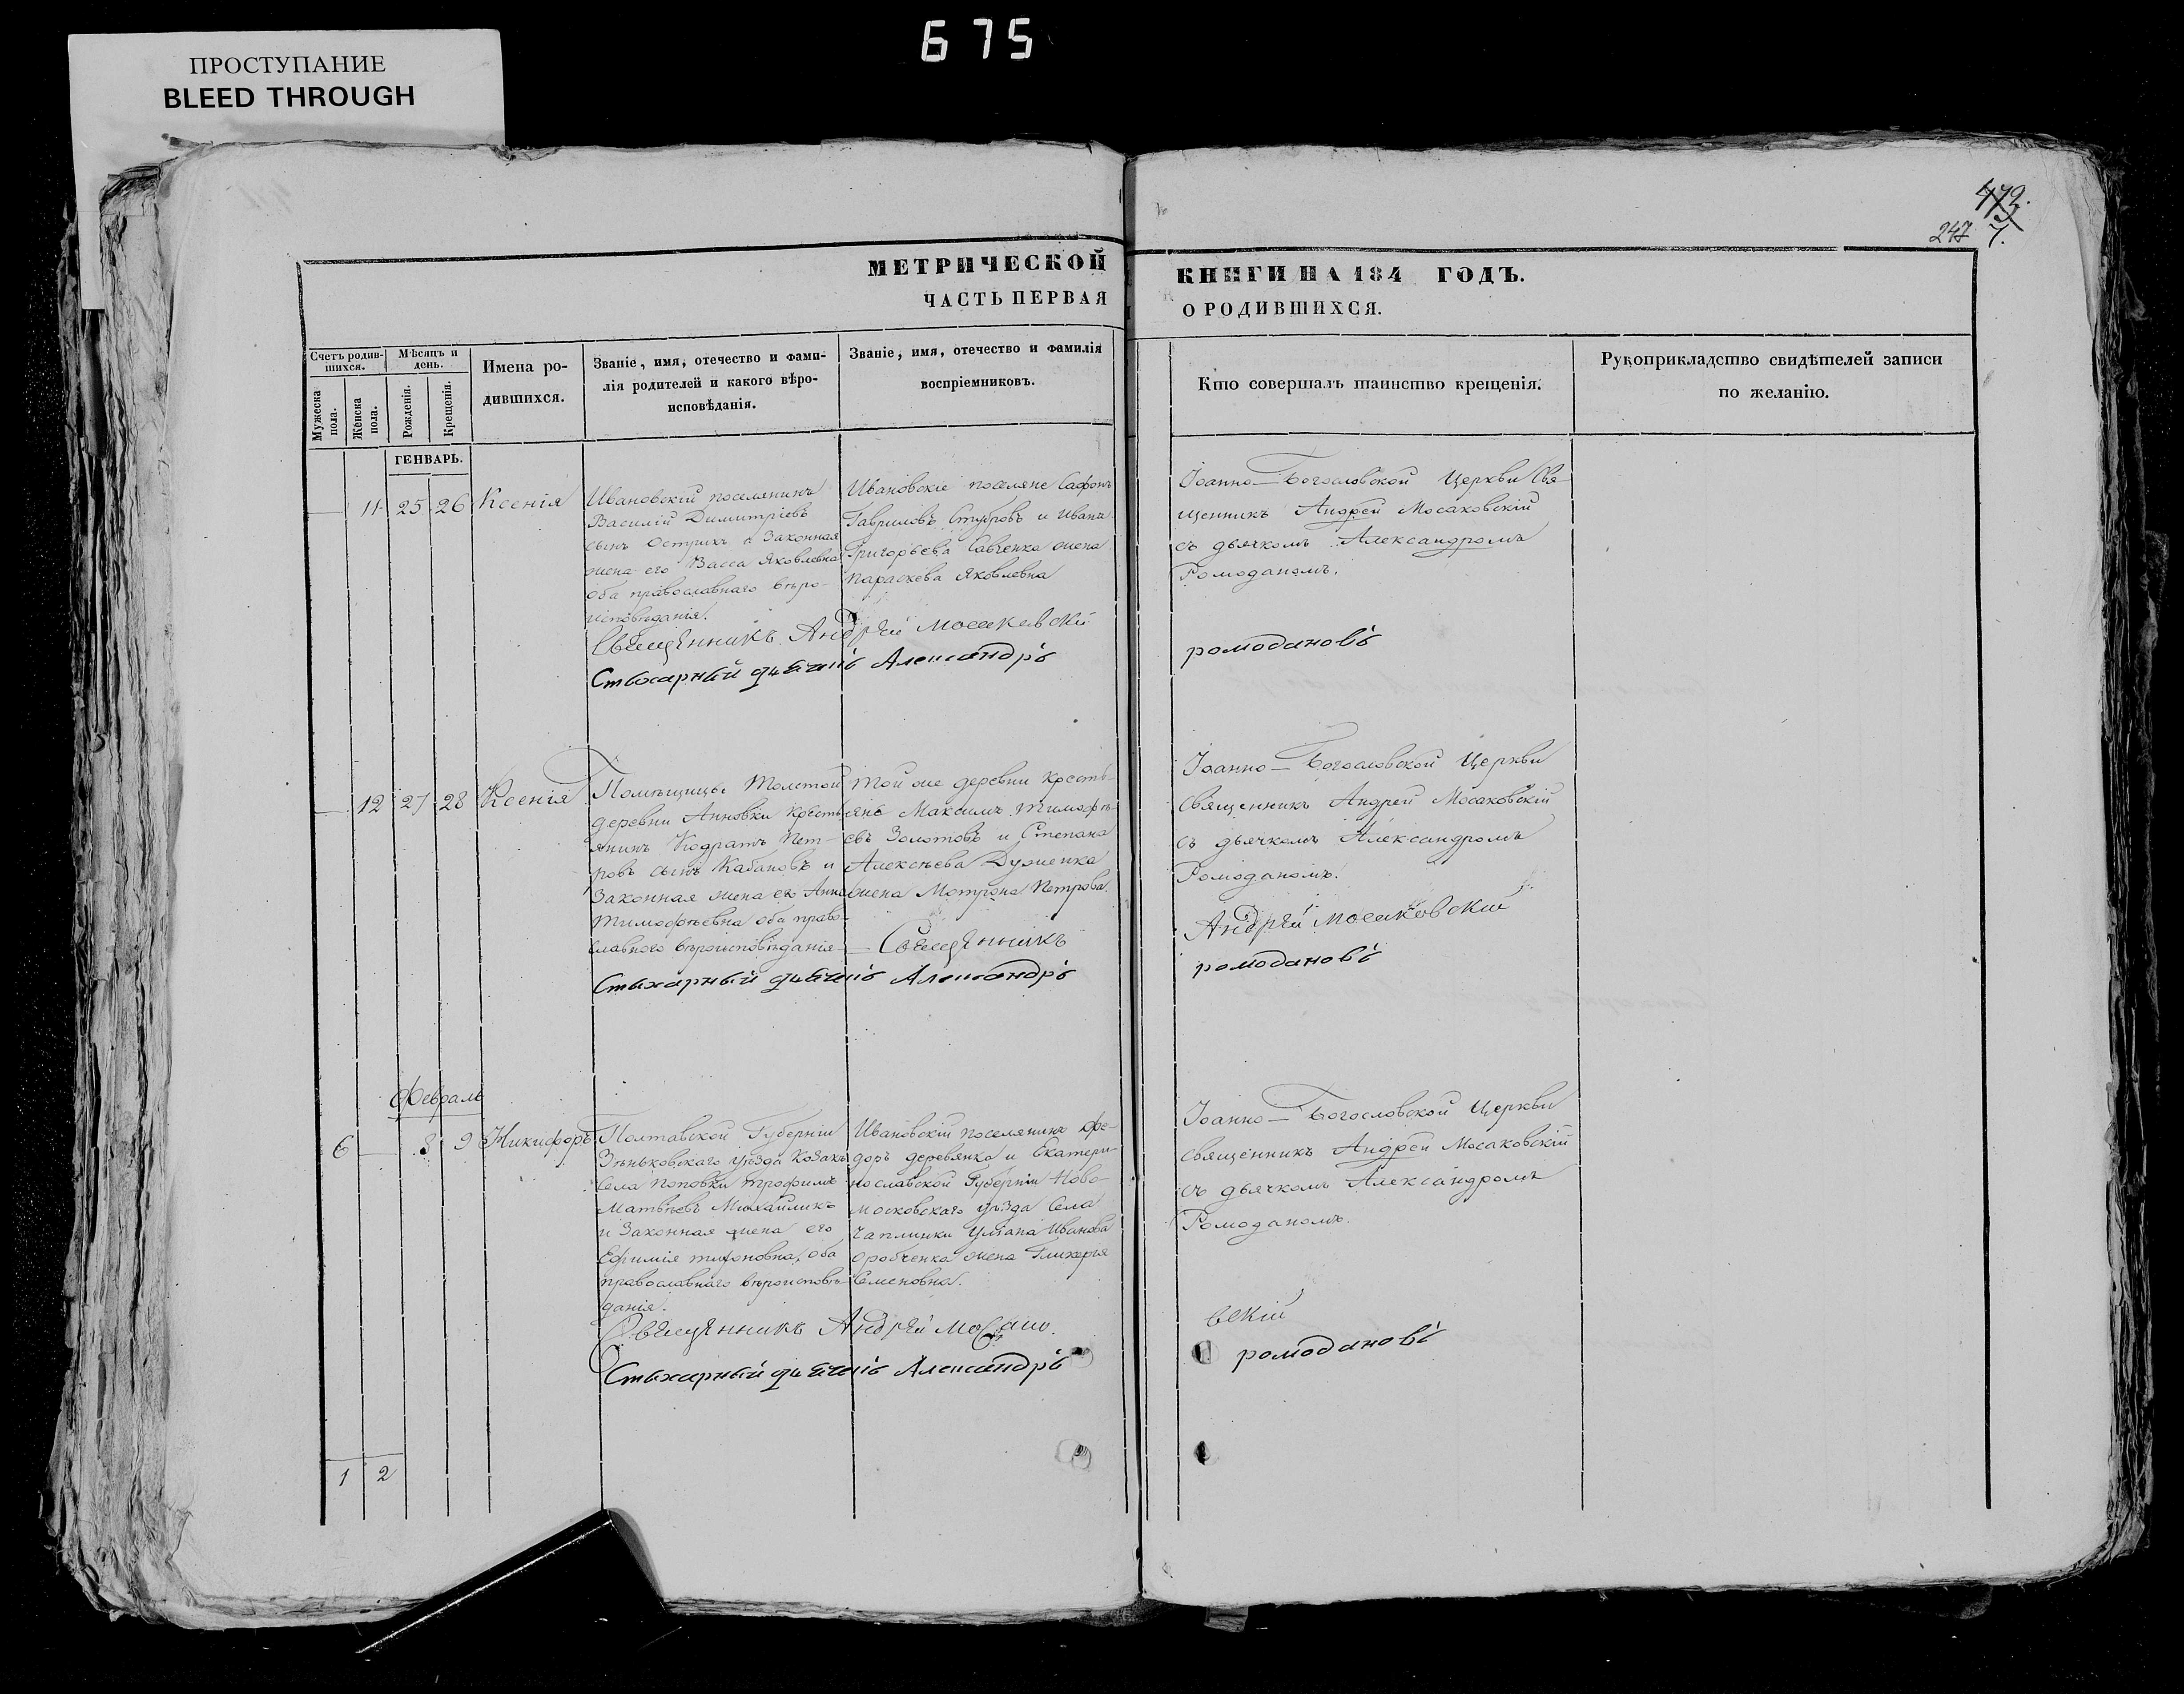 675
ПРОСТУПАНИЕ
BLEED THROUGH
473.
247 7.
МЕТРИЧЕСКОЙ КНИГИ НА 184 ГОДЪ.
ЧАСТЬ ПЕРВАЯ О РОДИВШИХСЯ.
Счетъ родив-
шихся.
Мужеска
пола.
Женска
пола.
Мѣсяцъ и
день.
Рожденія.
Крещенія.
Имена ро-
дившихся.
Званіе, имя, отечество и фами-
лія родителей и какого вѣро-
исповѣданія.
Званіе, имя, отечество и фамилія
воспріемниковъ.
Кто совершалъ таинство крещенія.
Рукоприкладство свидѣтелей записи
по желанію.
ГЕНВАРЬ.
11 25 26 Ксенія
Ивановскій поселянинъ
Василій Димитріевъ
сынъ Острикъ и законная
жена его Васса Яковлевна
оба православнаго вѣро-
исповѣданія.
Ивановскіе поселяне Сафонъ
Гавриловъ и Ивана
Григорьева Савченка жена
Параскева Яковлевна
Іоанно-Богословской Церкви Свя-
щенникъ Андрей Мосаковскій
съ дьячкомъ Александромъ
Ромоданомъ.
Священникъ Андрей Мосаковскій
Стихарный дьячекъ Александръ ромодановъ
12 27 28 Ксенія
Помѣщицы Толстой
деревни Анновки кресть-
янинъ Кодратъ Пет-
ровъ сынъ Кабановъ и
законная жена его Анна
Тимофѣевна оба право-
славного вѣроисповѣданія
Той же деревни кресть-
яне Максимъ Тимофѣ-
евъ Золотовъ и Степана
Алексѣева Дуженка
жена Мотрона Петрова.
Іоанно-Богословской Церкви
Священникъ Андрей Мосаковскій
съ дьячкомъ Александромъ
Ромоданомъ.
Священникъ Андрей Мосаковскій
Стихарный дьячекъ Александръ ромодановъ
Февраль
6 8 9 Никифоръ
Полтавской Губерніи
Зѣньковскаго уѣзда козакъ
села Поповки Трофимъ
Матвѣевъ Михайлик=
и законная жена его
Ефимія оба
православнаго вѣроисповѣ-
данія.
Ивановскій поселянинъ Фе-
доръ деревянко и Екатери-
нославской Губерніи Ново-
московскаго уѣзда села
Чаплинки Уліана Иванова
жена Гликерья
Семеновна.
Іоанно-Богословской Церкви
священникъ Андрей Мосаковскій
съ дьячкомъ Александромъ
Ромоданомъ.
Священникъ Андрей Мосако. вскій
Стихарный дьячекъ Александръ ромодановъ
1 2